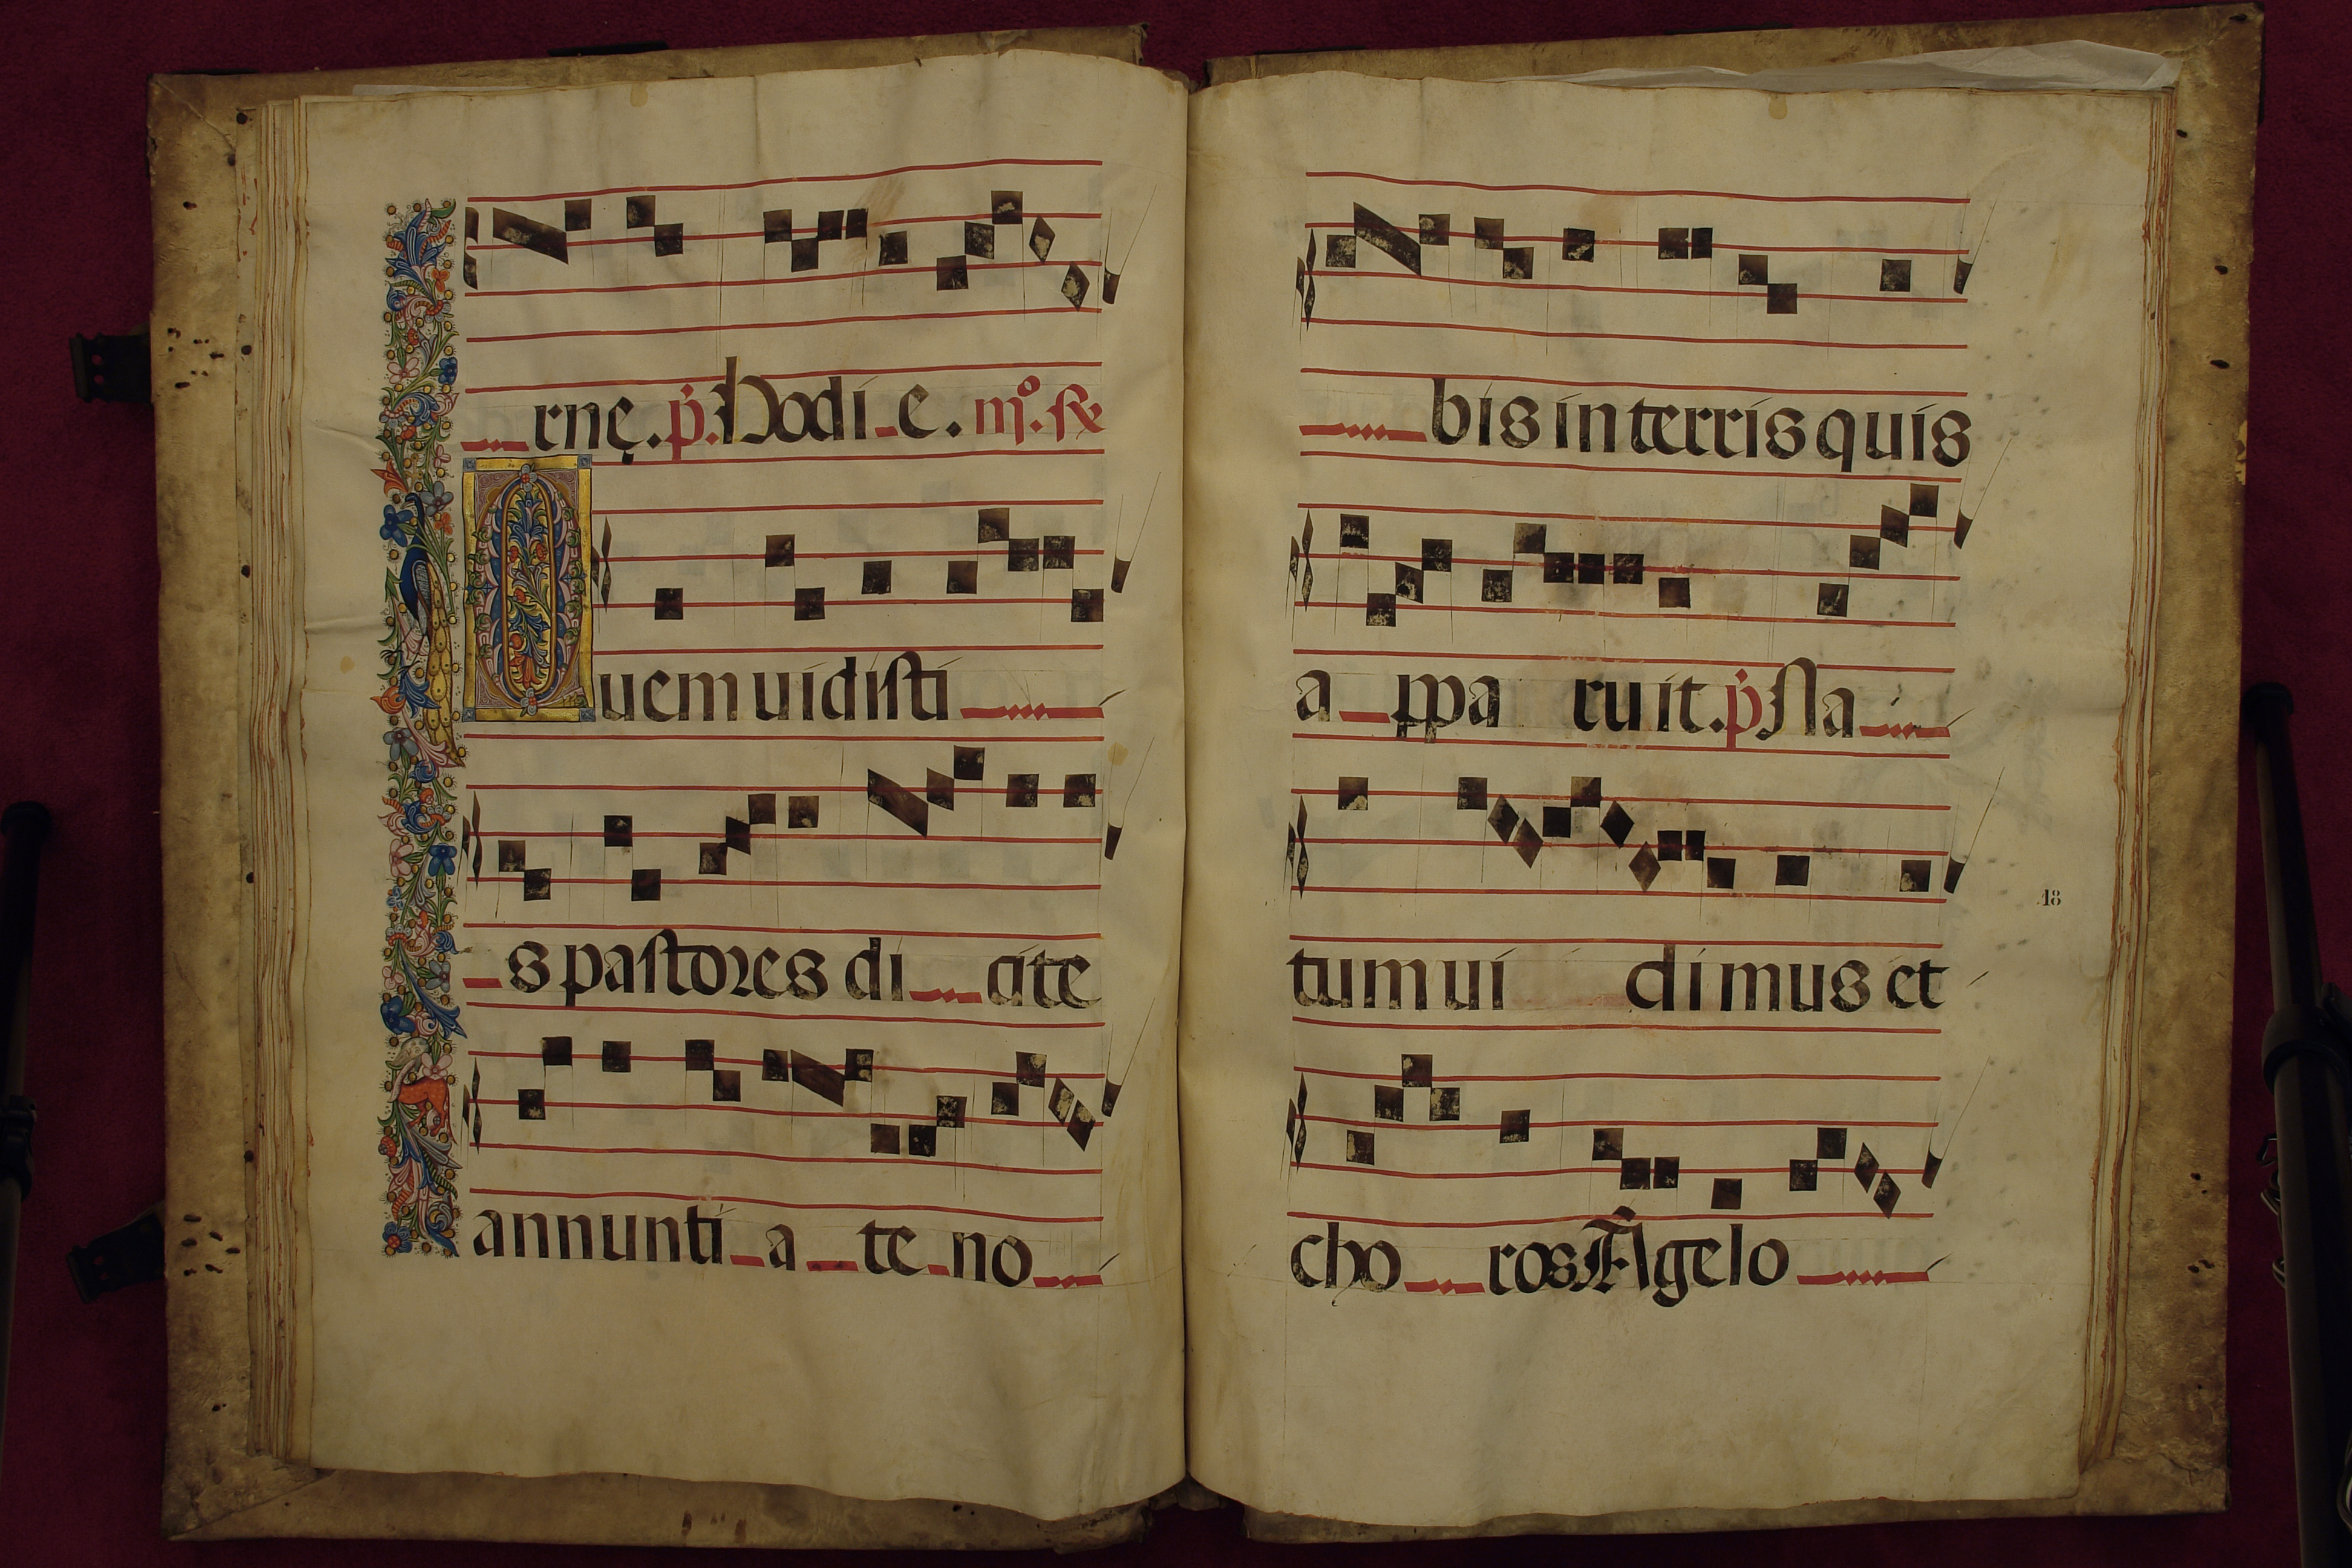 rnę. p̄. Hodi e. mº. ꝶ
Quem uidisti
s pastores di cite
annunti a te no
bis in terris quis
a ppa ruit. p̄ Na
tum ui dimus et
18
cho ros Ãgelo